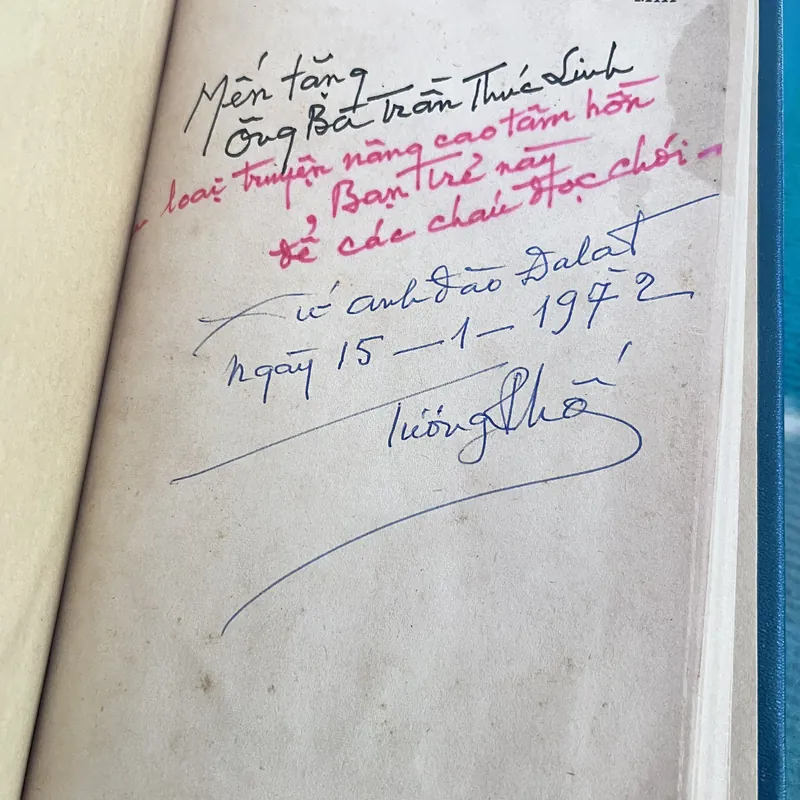 Mến tặng
Ông Bà Trần Thúc Linh
loại truyện nâng cao tâm hồn
Bạn trẻ này
để các cháu đọc chơi -
Xứ anh đào Dalat
ngày 15-1-1972
Tương Phố